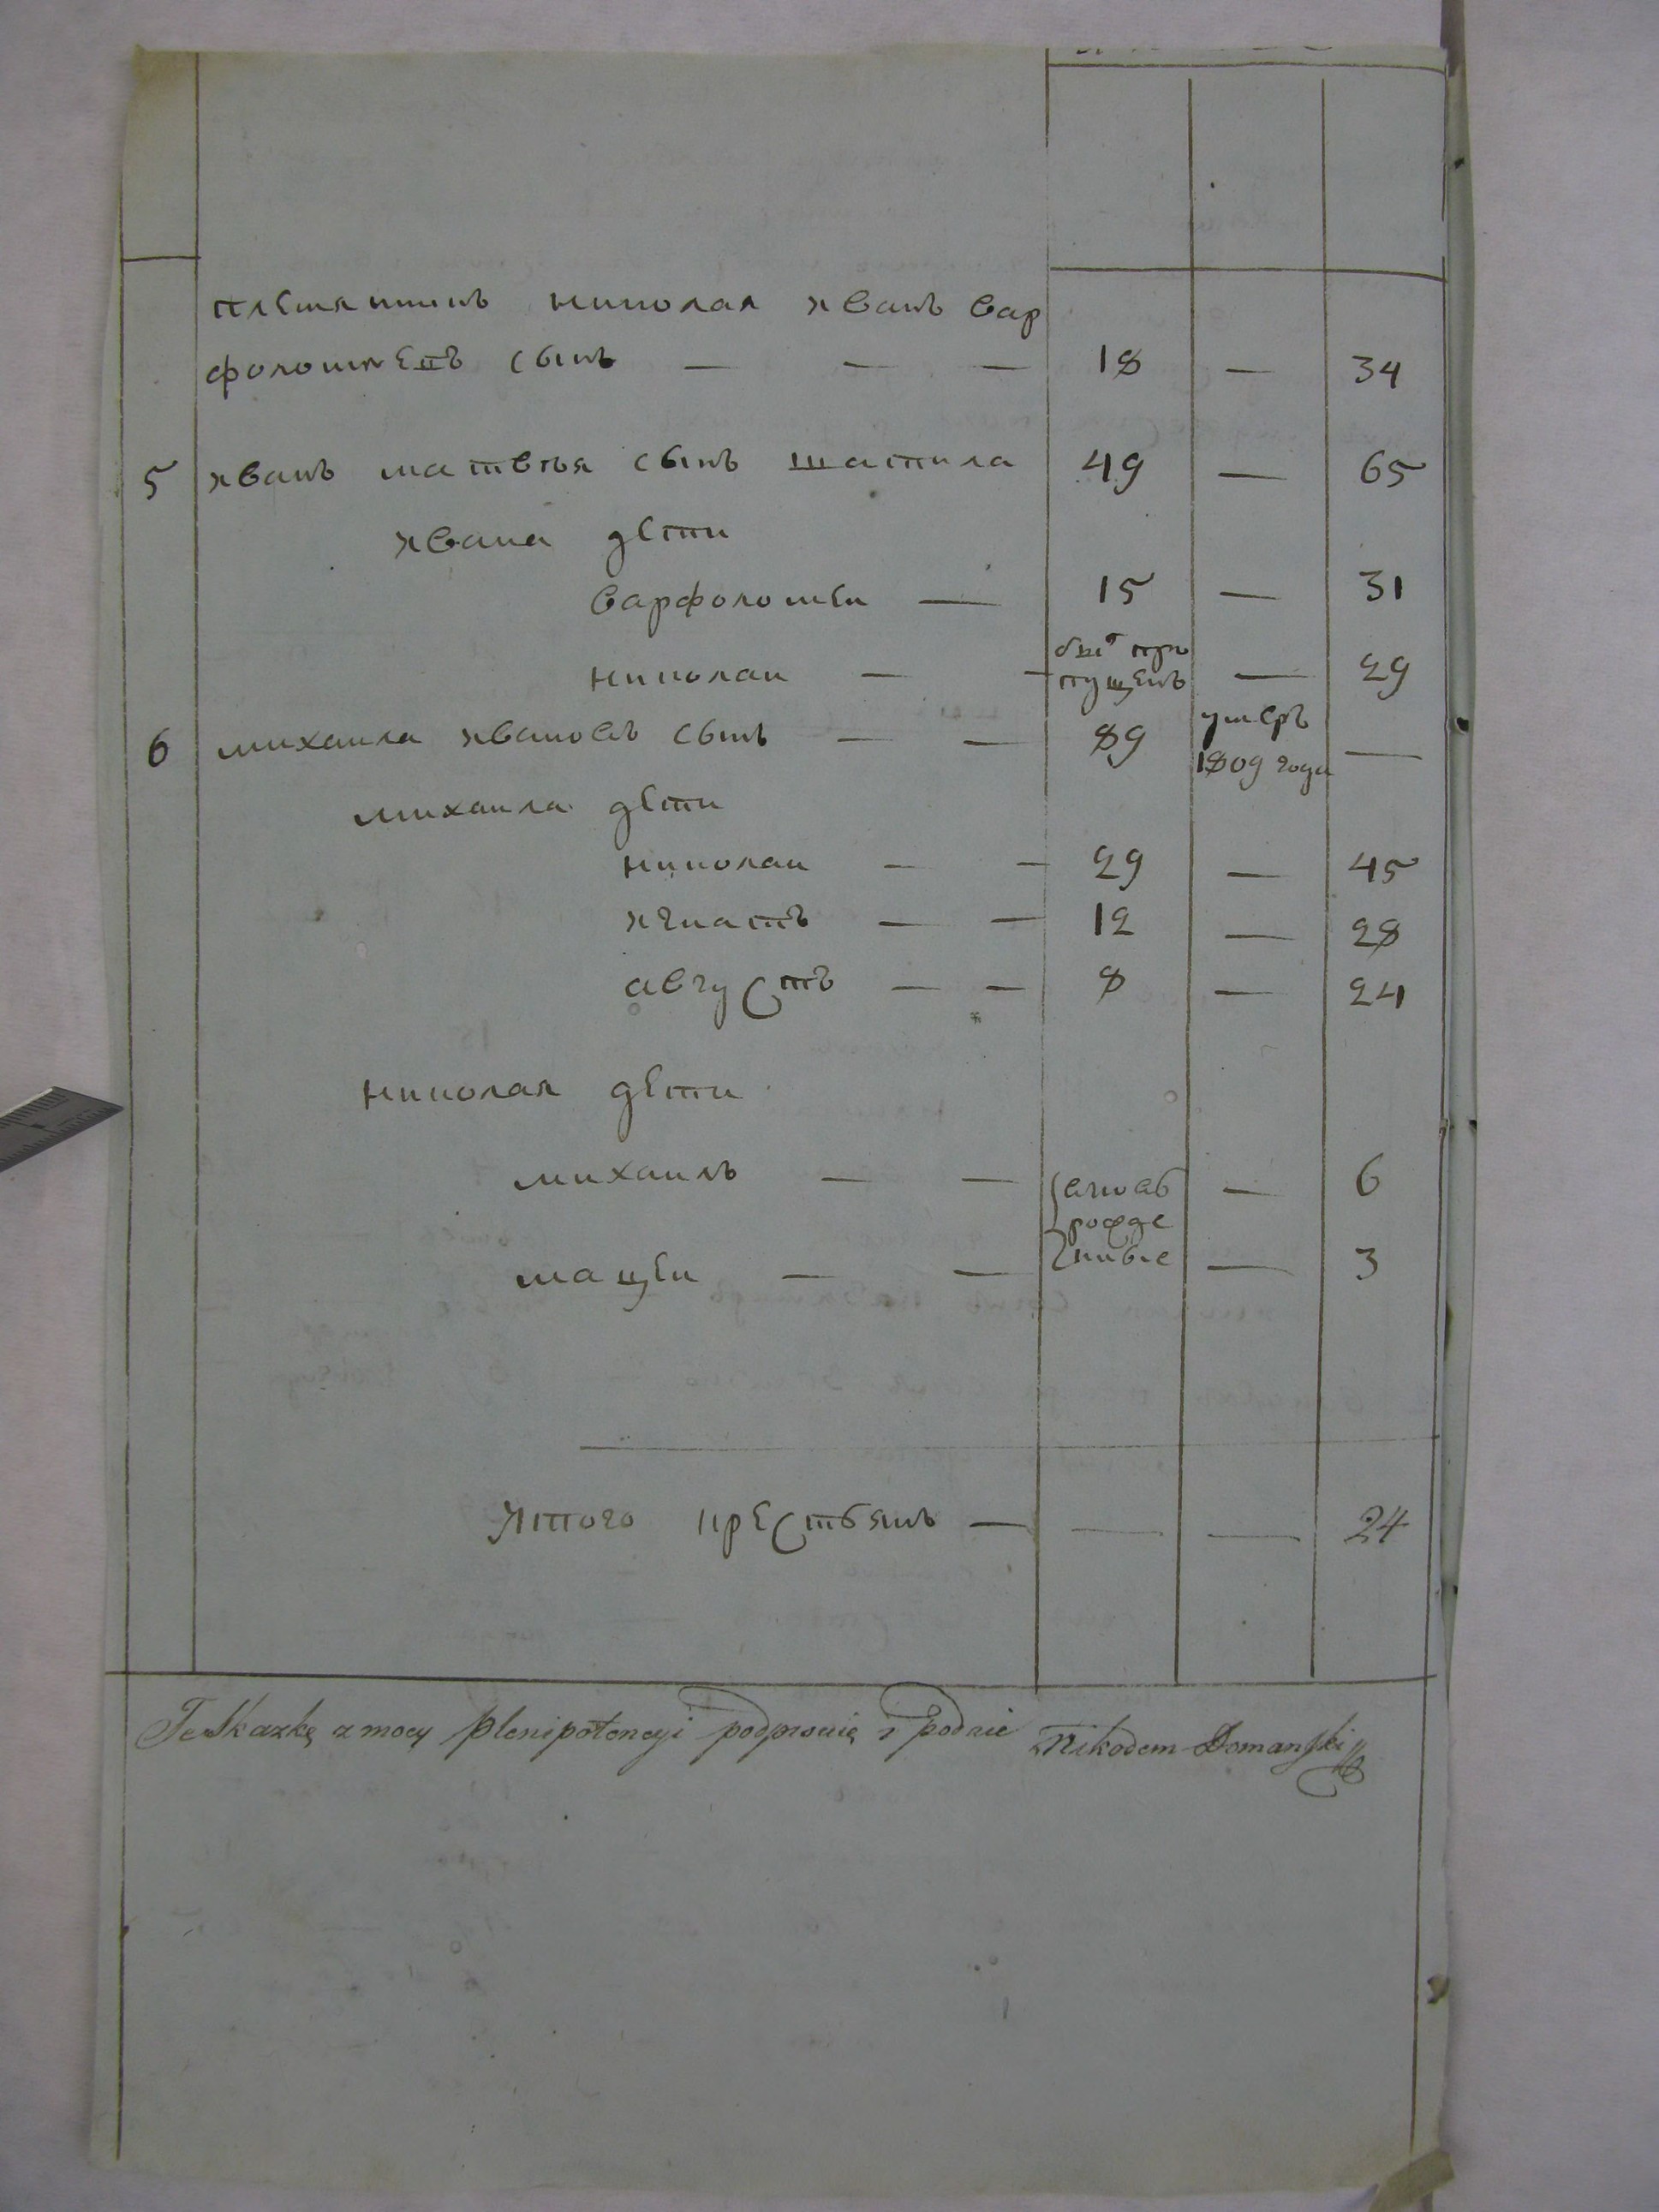 племянникъ николая иванъ вар
фоломеевъ сынъ — — — 18 — 34
5 иванъ матвѣя сынъ шапила 49 — 65
ивана дети
варфоломеи — 15 — 31
николаи — былъ про
пущенъ — 29
6 михаила ивановъ сынъ — — 89 умеръ
1809 года —
михаила дети
николаи — — 29 — 45
игнатъ — — 12 — 28
августъ — — 8 — 24
николая дети
михаилъ — — — 6
рожде
мацеи — — нные — 3
итого крестьянъ — — — 24
Te Skazkę z mocy plenipotencyi podprawię i podaie Nikodem Domanski